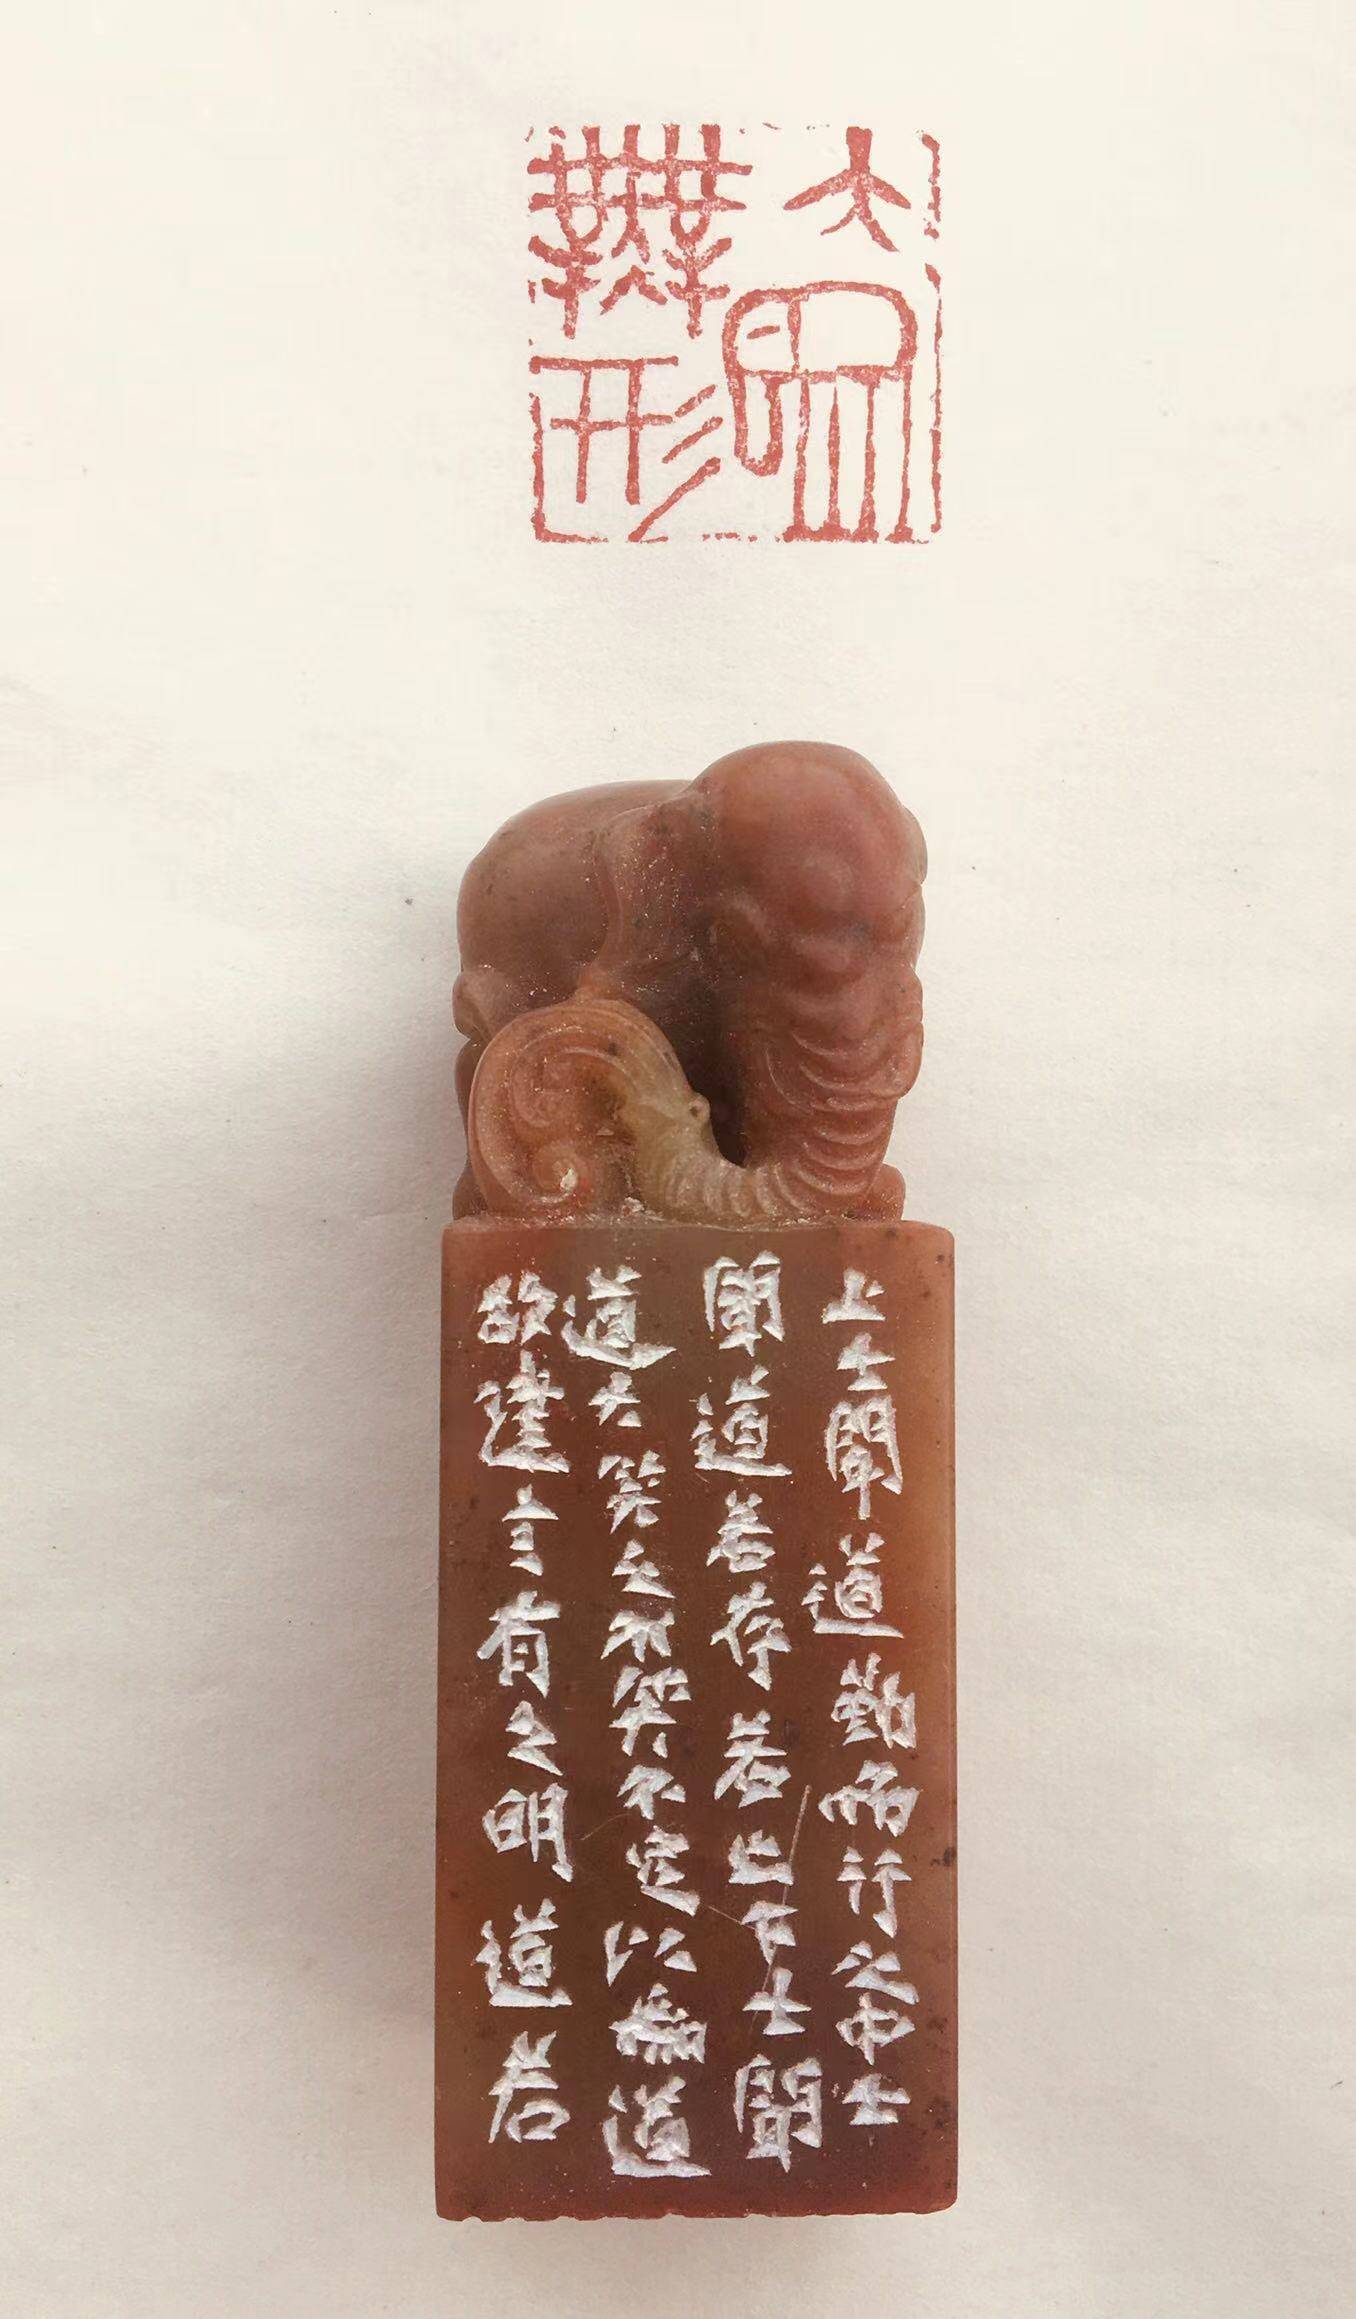 大象
無形
上士聞道勤而行之中士
聞道若存若亡下士聞
道大笑之不笑不足以為道
故建言有之明道若